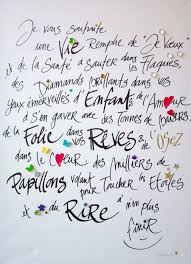 Je vous souhaite
une Vie Remplie de "Je Veux"
& de la Santé à Sauter dans les Flaques,
des Diamants brillants dans vos
Yeux émerveillés d'Enfants, de l'Amour
à s'en gaver avec des tonnes de
de la Folie dans vos Rêves & de l'Osez
dans le Cœur, des Milliers de
Papillons volant pour Toucher les Etoiles
& du Rire à n'en plus
finir